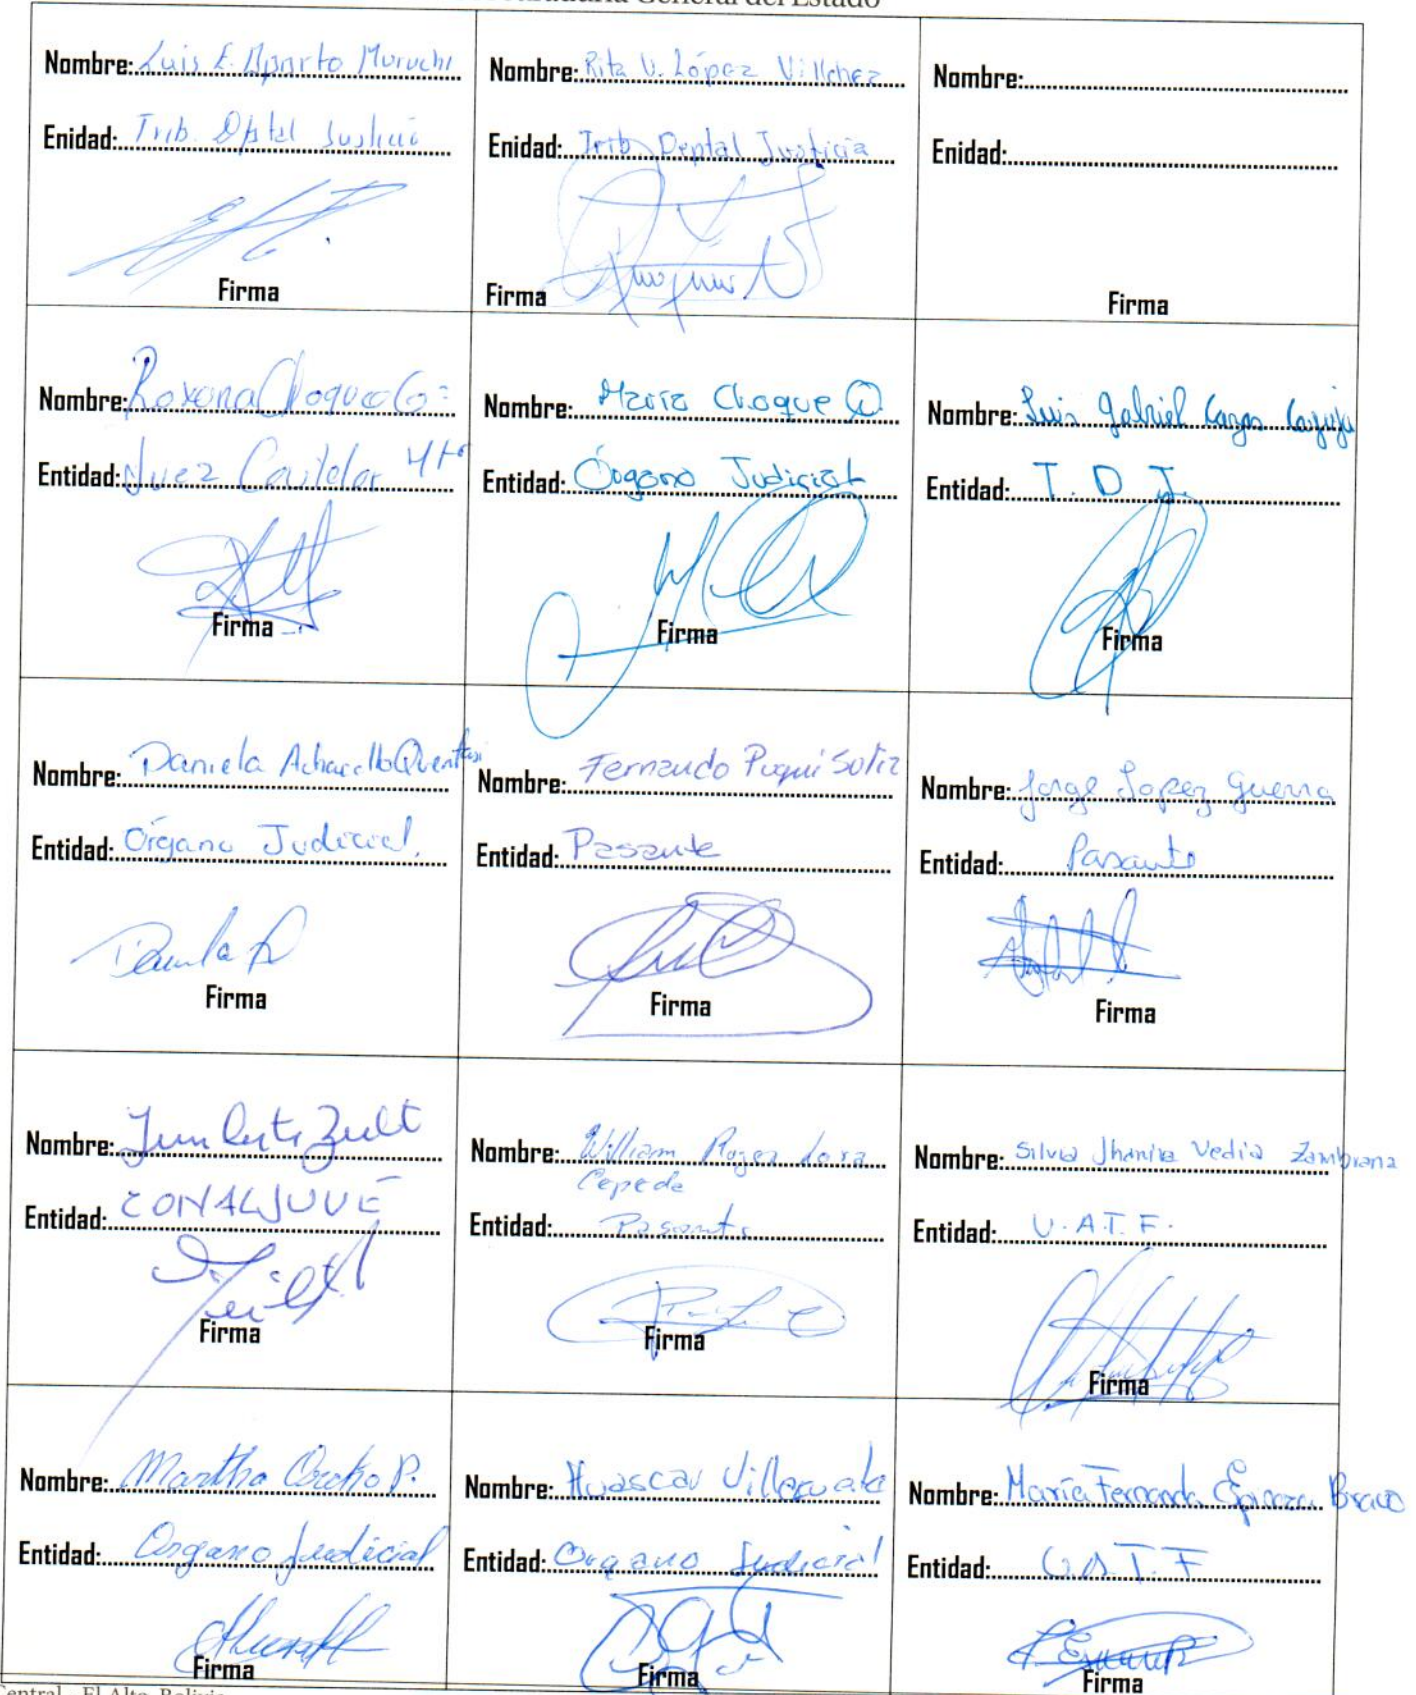 General del Estado
Nombre: Luis E. Aparto Muruchi
Enidad: Trib. Dptal Justicia
Firma
Nombre: Rita V. López Villchez
Enidad: Trib Deptal Justicia
Firma
Nombre:
Enidad:
Firma
Nombre: Roxana Choque G
Entidad: Juez Cautelar 4to
Firma
Nombre: María Choque Q.
Entidad: Órgano Judicial
Firma
Nombre: Luis Gabriel
Entidad: T. D J.
Firma
Nombre: Daniela Quentasi
Entidad: Órgano Judicial.
Firma
Nombre: Fernando
Entidad: Pasante
Firma
Nombre: Jorge Lopez Guerra
Entidad: Pasante
Firma
Nombre:
Entidad: CONALJUVE
Firma
Nombre: William Roger Lora
Cepeda
Entidad: Pasante
Firma
Nombre: Silvia Jhanira Vedia Zambrana
Entidad: U.A.T.F.
Firma
Nombre: Martha P.
Entidad: Organo Judicial
Firma
Nombre: Huascar
Entidad: Organo Judicial
Firma
Nombre: María Fernanda Espinoza Bravo
Entidad: U.A.T.F
Firma
Central - El Alto, Bolivia